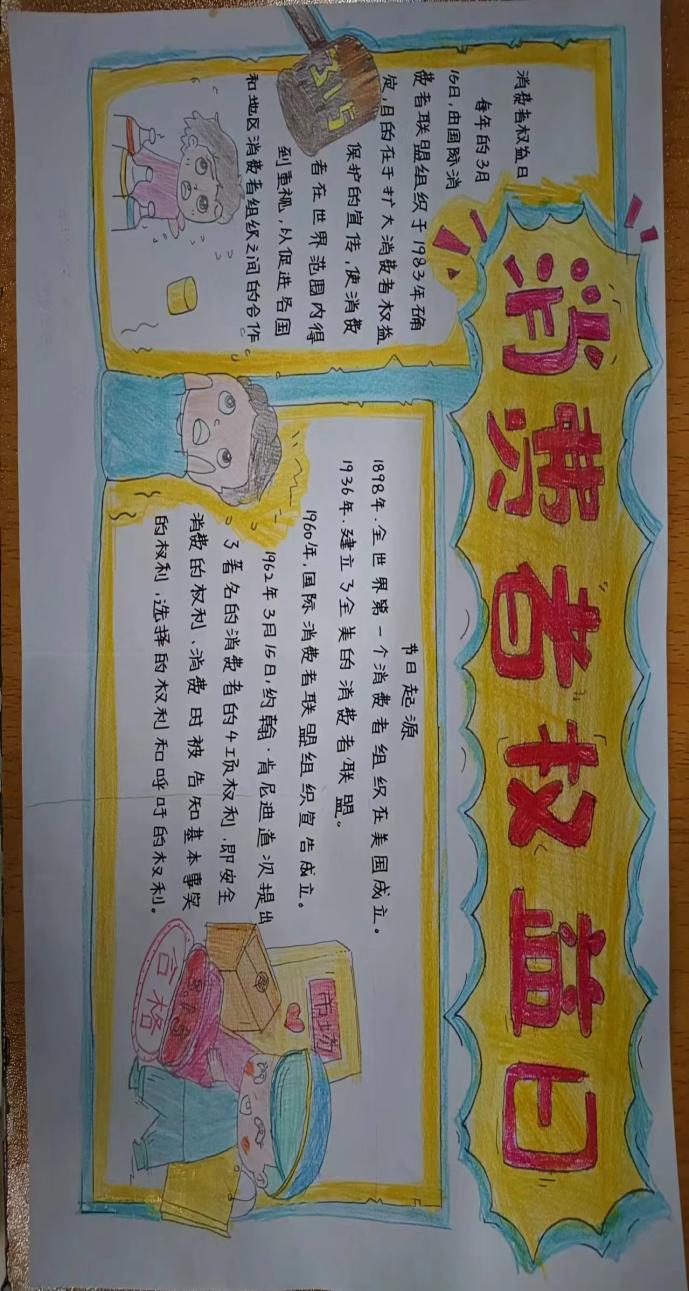 消费者权益日
消费者权益日
每年的3月
15日,由国际消
费者联盟组织于1983年确
定,目的在于扩大消费者权益
保护的宣传,使消费
者在世界范围内得
到重视,以促进各国
和地区消费者组织之间的合作
315
节日起源
1898年.全世界第一个消费者组织在美国成立。
1936年.建立了全美的消费者联盟。
1960年,国际消费者联盟组织宣告成立。
1962年3月15日,约翰·肯尼迪首次提出
了著名的消费者的4项权利.即安全
消费的权利、消费时被告知基本事实
的权利,选择的权利和呼吁的权利。
市场
3.15
合格